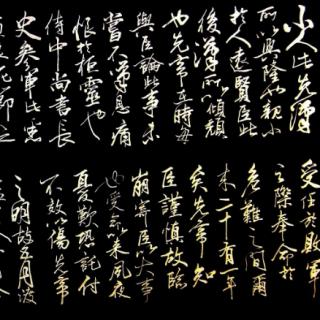 小人此先漢
所以興隆也親小
人遠賢臣此
後漢所以傾頹
也先帝在時每
與臣論此事未
嘗不嘆息痛
恨於桓靈也
侍中尚書長
史參軍此悉
死節之
受任於敗軍
之際奉命於
危難之間爾
來二十有一年
矣先帝知
臣謹慎故臨
崩寄臣以大事
也受命以來夙夜
憂勤恐託付
不效以傷先帝
之明故五月渡